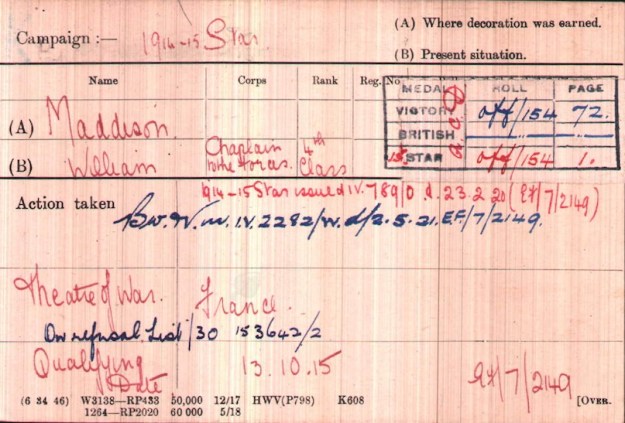 Campaign :— 1914-15 Star.
(A) Where decoration was earned.
(B) Present situation.
Name Corps Rank Reg. No.
MEDAL ROLL PAGE
VICTORY Off/154 72.
BRITISH
15 STAR Off/154 1.
(A) Maddison.
(B) William Chaplain to the Forces. 4th Class
1914-15 Star issued IV. 789/0 d. 23.2.20 (EF/7/2149)
Action taken
B.W.V.m. IV. 2282/W. d/2.5.21. EF/7/2149.
Theatre of War. France.
On refusal List/30 153642/2
Qualifying Date 13.10.15
EF/7/2149
(6 34 46) W3138—RP433 50,000 12/17 HWV(P798) K608
1264—RP2020 60 000 5/18
[OVER.